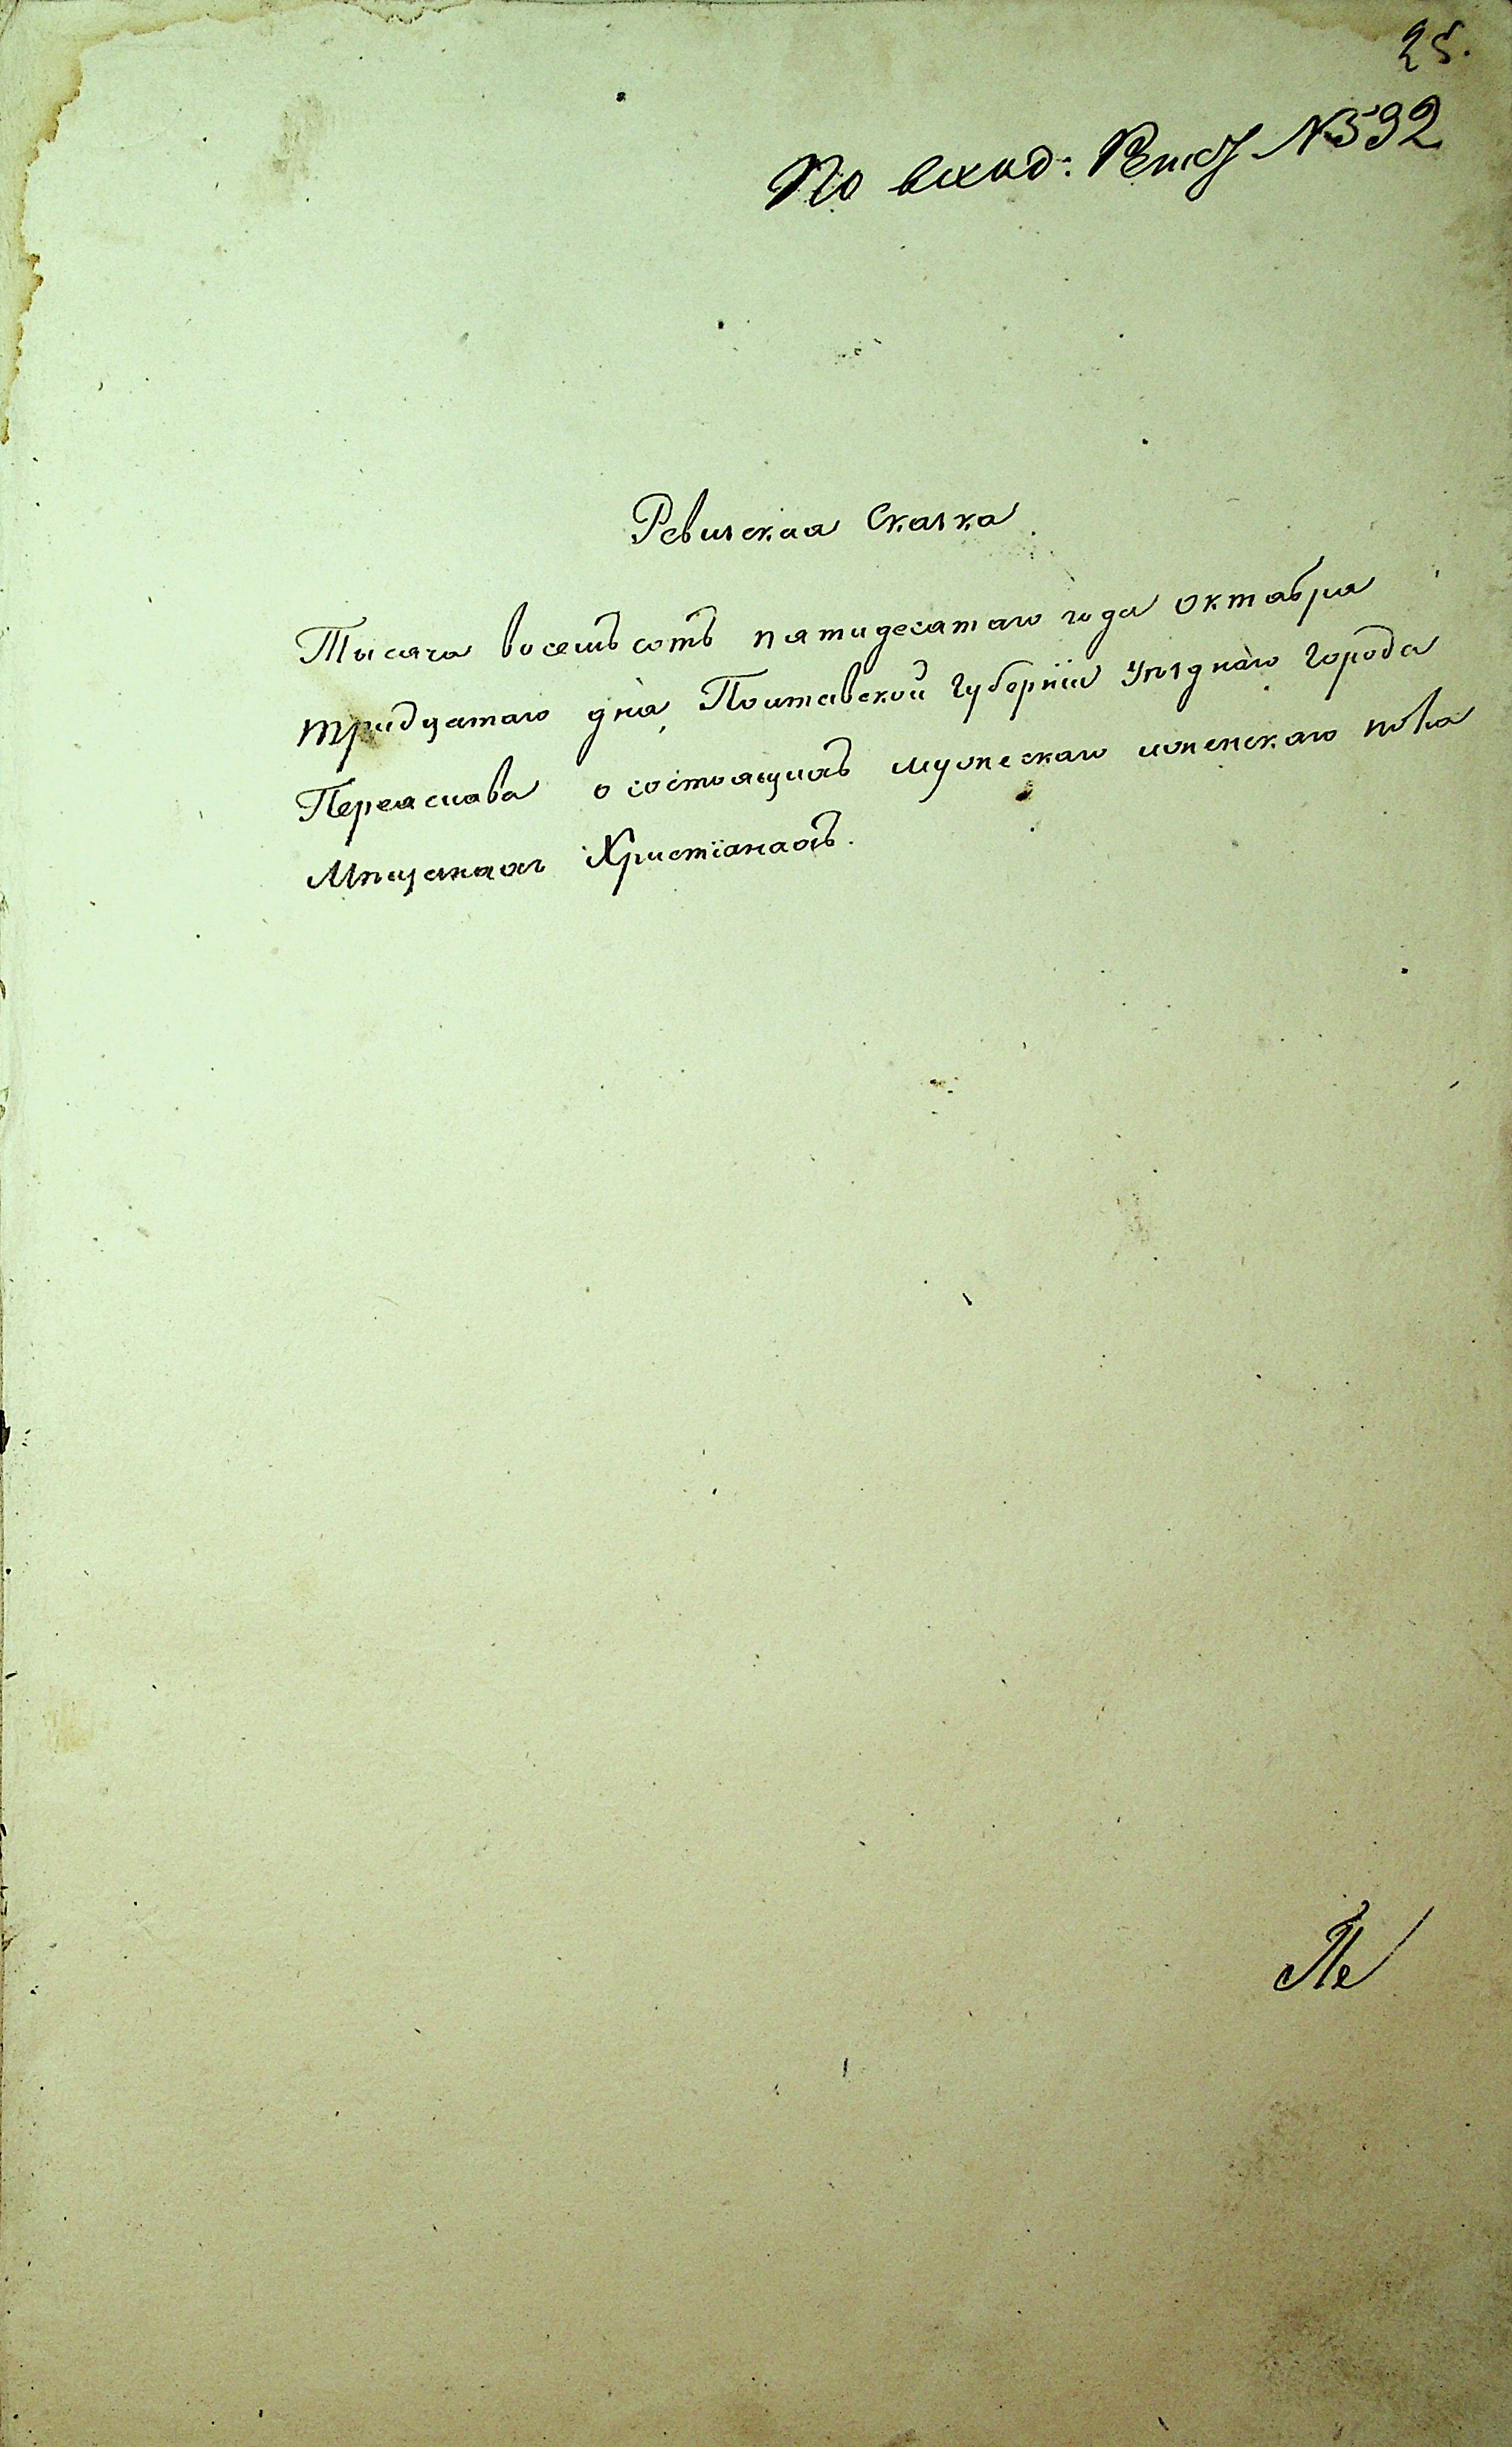 25.
По вход: Реист №592
Ревизская Сказка
Тысяча восемьсотъ пятидесятаго года Октября
тридцатаго дня, Полтавской Губерніи Уѣзднаго Города
Переяслава о состоящихъ мужескаго и женскаго пола
Мѣщанахъ Христіанахъ.
Пе